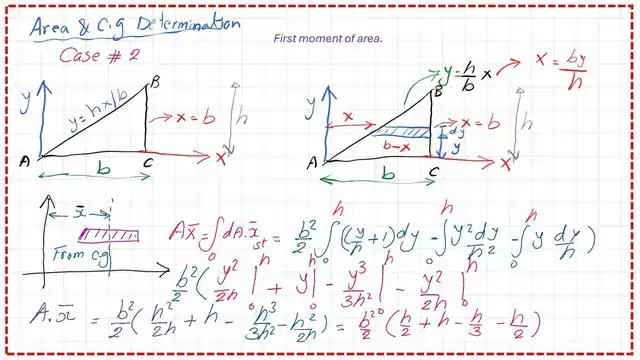 Area & C.g Determination
First moment of area.
Case # 2
y = hx/b
B
y
x = b
h
A
b
C
x
y = h/b x
x = by/h
B
y
x
x = b
h
dy
b-x
y
A
b
C
x
x̄
From c.g
Ax̄ = ∫₀ʰ dA.x̄st = b²/2 ∫₀ʰ ((y/h + 1)dy - ∫₀ʰ y² dy/h² - ∫₀ʰ y dy/h)
b²/2 (y²/2h |₀ʰ + y |₀ʰ - y³/3h² |₀ʰ - y²/2h |₀ʰ
A.x̄ = b²/2 (h²/2h + h - h³/3h² - h²/2h) = b²/2 (h/2 + h - h/3 - h/2)